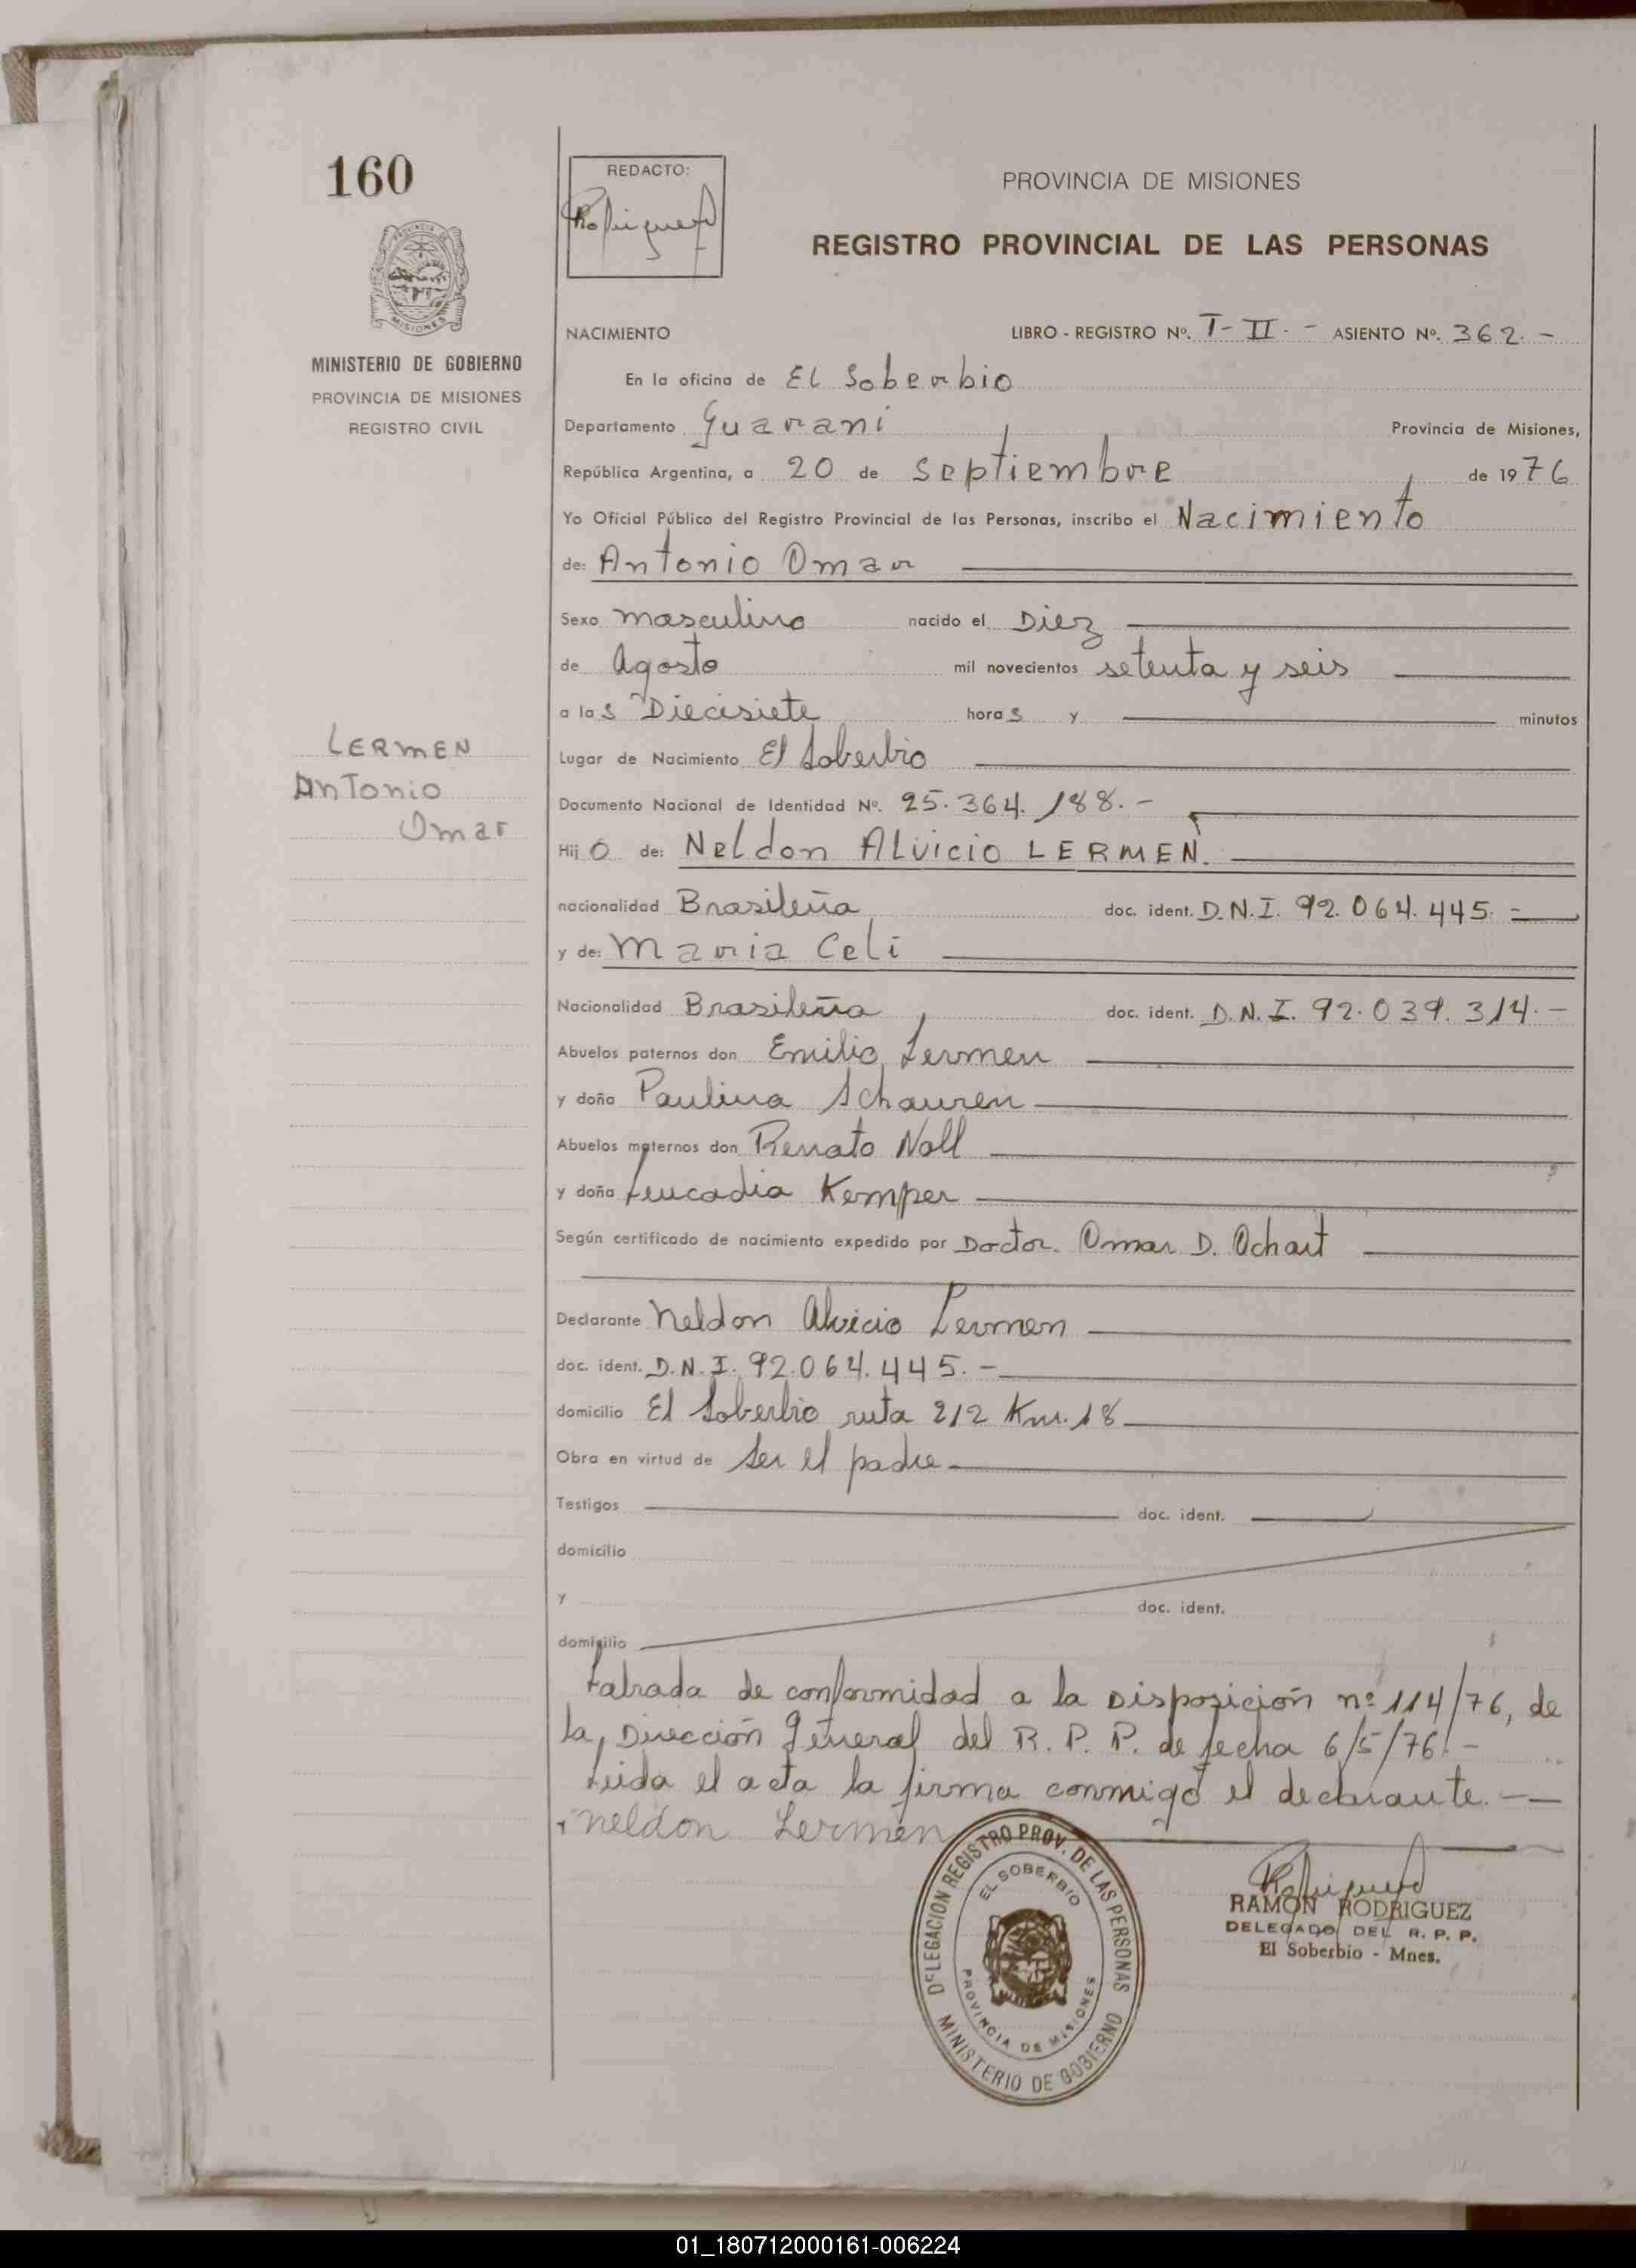 160
REDACTO:
Rodriguez
PROVINCIA DE MISIONES
REGISTRO PROVINCIAL DE LAS PERSONAS
PROVINCIA DE
MISIONES
MINISTERIO DE GOBIERNO
PROVINCIA DE MISIONES
REGISTRO CIVIL
NACIMIENTO LIBRO - REGISTRO Nº. T- II. - ASIENTO Nº. 362. -
En la oficina de El Soberbio
Departamento Guarani Provincia de Misiones,
República Argentina, a 20 de septiembre de 1976
Yo Oficial Público del Registro Provincial de las Personas, inscribo el Nacimiento
de: Antonio Omar
Sexo masculino nacido el Diez
de Agosto mil novecientos setenta y seis
a las Diecisiete horas y minutos
LERMEN
Antonio
Omar
Lugar de Nacimiento El Soberbio
Documento Nacional de Identidad Nº. 25.364.188. -
Hijo de: Neldon Alvicio LERMEN.
nacionalidad Brasileña doc. ident. D.N.I. 92.064.445. -
y de: Maria Celi
Nacionalidad Brasileña doc. ident. D.N.I. 92.039.314. -
Abuelos paternos don Emilio Lermen
y doña Paulina Schauren
Abuelos maternos don Renato Noll
y doña Leucadia Kemper
Según certificado de nacimiento expedido por Doctor. Omar D. Ochart
Declarante Neldon Alvicio Lermen
doc. ident. D.N.I. 92.064.445. -
domicilio El Soberbio ruta 212 Km. 18
Obra en virtud de Ser el padre
Testigos doc. ident.
domicilio
y doc. ident.
domicilio
Labrada de conformidad a la Disposición nº 114/76, de
la Dirección General del R. P. P. de fecha 6/5/76. -
Leida el acta la firma conmigo el declarante. -
neldon Lermen
DELEGACION REGISTRO PROV. DE LAS PERSONAS
EL SOBERBIO
PROVINCIA DE MISIONES
MINISTERIO DE GOBIERNO
Rodriguez
RAMON RODRIGUEZ
DELEGADO DEL R. P. P.
El Soberbio - Mnes.
01_180712000161-006224